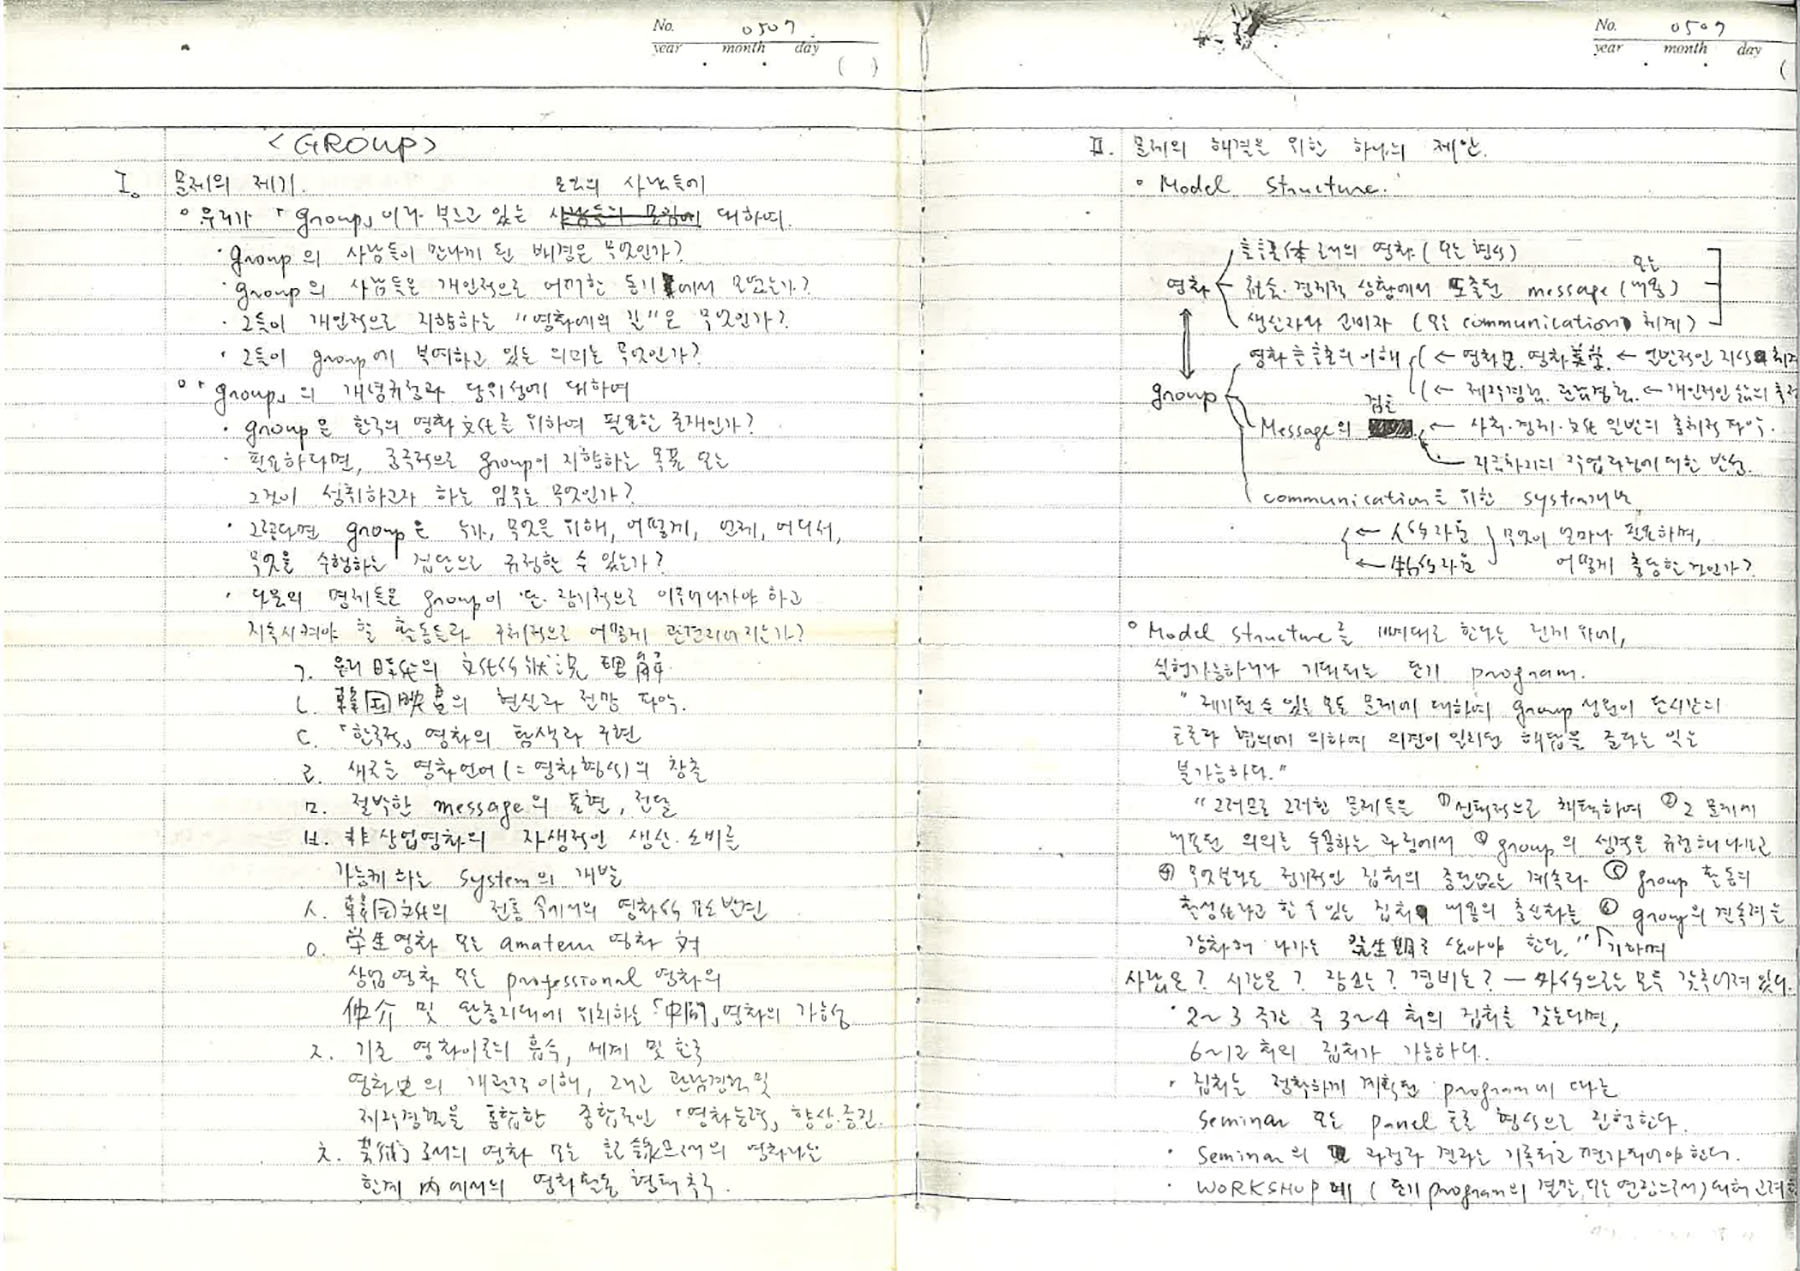 No. 0507
year month day
( )
<GROUP>
I. 문제의 제기.
모임의 사람들에
° 우리가 「group」이라 부르고 있는 대하여.
· group의 사람들이 만나게 된 배경은 무엇인가?
· group의 사람들은 개인적으로 어떠한 동기에서 모였는가?
· 그들이 개인적으로 지향하는 "영화에의 길"은 무엇인가?
· 그들이 group에 부여하고 있는 의미는 무엇인가?
° 「group」의 개념규정과 당위성에 대하여
· group은 한국의 영화文化를 위하여 필요한 존재인가?
· 필요하다면, 궁극적으로 group이 지향하는 목표 또는
그것이 성취하고자 하는 임무는 무엇인가?
· 그렇다면 group은 누가, 무엇을 위해, 어떻게, 언제, 어디서,
무엇을 수행하는 집단으로 규정할 수 있는가?
· 다음의 명제들은 group이 단·장기적으로 이루어나가야 하고
지속시켜야 할 활동들과 구체적으로 어떻게 관련지어지는가?
ㄱ. 우리 時代의 文化的 狀況 理解
ㄴ. 韓国映畵의 현실과 전망 파악.
ㄷ. 「한국적」 영화의 탐색과 구현
ㄹ. 새로운 영화언어(=영화형식)의 창출
ㅁ. 절박한 message의 표현, 전달
ㅂ. 非상업영화의 자생적인 생산·소비를
가능케 하는 system의 개발
ㅅ. 韓国文化의 전통 속에서의 영화的 요소 발견
ㅇ. 学生영화 또는 amateur 영화 対
상업영화 또는 professional 영화의
仲介 및 완충지대에 위치하는 「中間」영화의 가능성
ㅈ. 기존 영화이론의 흡수, 세계 및 한국
영화史의 개관적 이해, 그리고 관람경험 및
제작경험을 통합한 종합적인 「영화능력」 향상·증진.
ㅊ. 로서의 영화 또는 記錄으로서의 영화라는
한계 內에서의 영화활동 형태 추구.
No. 0507
year month day
(
II. 문제의 해결을 위한 하나의 제안.
° Model Structure.
로서의 영화 (또는 형식)
또는
영화 정치적 상황에서 도출된 message (내용)
생산자와 소비자 (또는 communication 체계)
영화 의 이해 ← 영화史, 영화美学. ← 일반적인 지식의
group ← 제작경험, 관람경험. ← 개인적인 삶의
검토
Message의 ← 사회·정치·文化 일반의 총체적 파악.
지금까지의 작업과정에 대한 반성.
communication을 위한 system개발
← 人的자원 무엇이 얼마나 필요하며,
← 物的자원 어떻게 충당할 것인가?
° Model structure를 뼈대로 한다는 전제 위에,
실험가능하거나 기대되는 단기 program.
"제기될 수 있는 모든 문제에 대하여 group 성원이 단시간의
토론과 협의에 의하여 의견이 일치된 해답을 준다는 일은
불가능하다."
"그러므로 그러한 문제들을 ① 선택적으로 채택하여 ② 그 문제에
내포된 의의를 수용하는 과정에서 ③ group의 성격을 규정해 나가고
④ 무엇보다도 정기적인 집회의 중단없는 계속과 ⑤ group 활동의
활성화라고 할 수 있는 집회 내용의 충실화를 ⑥ group의 결속력을
강화해 나가는 로 삼아야 한다." 기하며
사람은? 시간은? 장소는? 경비는? — 外的으로는 모두 갖추어져 있다.
· 2~3 주간 주 3~4 회의 집회를 갖는다면,
6~12 회의 집회가 가능하다.
· 집회는 정확하게 계획된 program에 따른
Seminar 또는 panel 토론 형식으로 진행한다.
· Seminar의 과정과 결과는 기록되고 평가되어야 한다.
· WORKSHOP에 (단기 program의 결말, 또는 연장으로서) 대해 고려